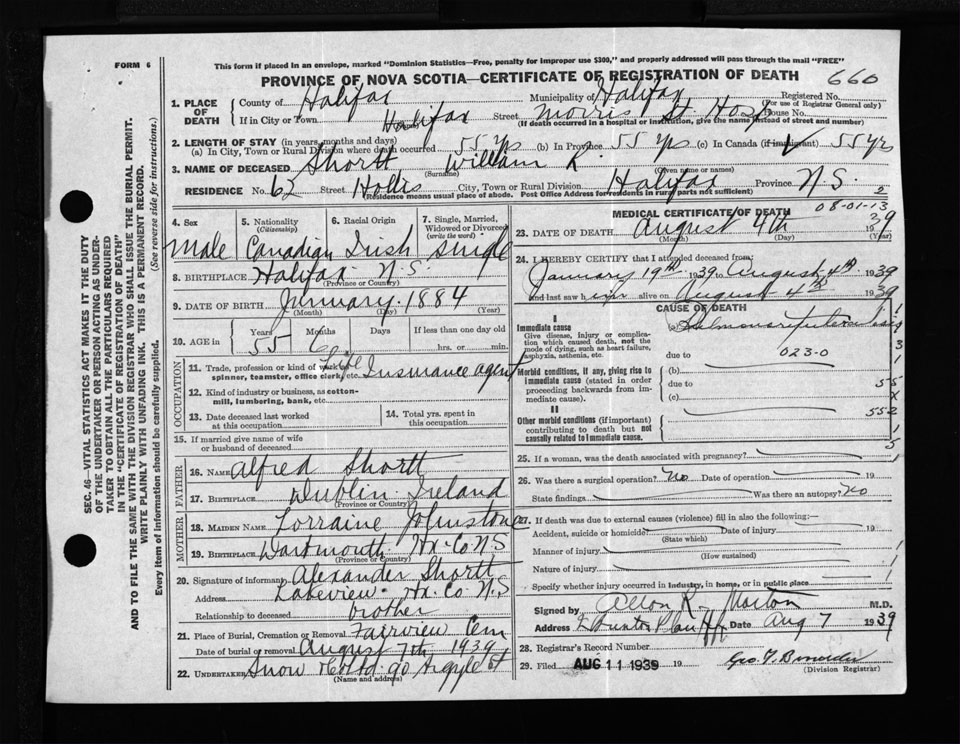 FORM 6
This form if placed in an envelope, marked "Dominion Statistics—Free, penalty for improper use $300," and properly addressed will pass through the mail "FREE"
PROVINCE OF NOVA SCOTIA—CERTIFICATE OF REGISTRATION OF DEATH 660
1. PLACE OF DEATH County of Halifax Municipality of Halifax Registered No. (For use of Registrar General only)
If in City or Town Halifax (Name) Street Morris St Hosp House No.
(If death occurred in a hospital or institution, give the name instead of street and number)
2. LENGTH OF STAY (in years, months and days)
(a) In City, Town or Rural Division where death occurred 55 yrs (b) In Province 55 yrs (c) In Canada (if immigrant) 55 yr
3. NAME OF DECEASED Shortt (Surname) William R. (Given name or names)
RESIDENCE No. 62 Street Hollis City, Town or Rural Division Halifax Province N.S. 2
(Residence means usual place of abode. Post Office Address for residents in rural parts not sufficient)
4. Sex Male
5. Nationality (Citizenship) Canadian
6. Racial Origin Irish
7. Single, Married, Widowed or Divorced (write the word) Single
8. BIRTHPLACE Halifax N.S. (Province or Country)
9. DATE OF BIRTH January 1884 (Month) (Day) (Year)
10. AGE in Years 55 Months 6 Days If less than one day old hrs. or min.
OCCUPATION
11. Trade, profession or kind of work as spinner, teamster, office clerk, etc. Life Insurance agent
12. Kind of industry or business, as cotton-mill, lumbering, bank, etc.
13. Date deceased last worked at this occupation
14. Total yrs. spent in this occupation
15. If married give name of wife or husband of deceased
FATHER
16. NAME Alfred Shortt
17. BIRTHPLACE Dublin Ireland (Province or Country)
MOTHER
18. MAIDEN NAME Lorraine Johnstone
19. BIRTHPLACE Dartmouth Hx. Co. N.S (Province or Country)
20. Signature of informant Alexander Shortt
Address Lakeview Hx. Co. N.S
Relationship to deceased brother
21. Place of Burial, Cremation or Removal Fairview Cem
Date of burial or removal August 7th 1939
22. UNDERTAKER Snow & Co Ltd 90 Argyle St
(Name and address)
MEDICAL CERTIFICATE OF DEATH
08-01-13
23. DATE OF DEATH August 4th 1939 (Month) (Day) (Year)
24. I HEREBY CERTIFY that I attended deceased from:
January 19th 1939 to August 4th 1939
and last saw him alive on August 4th 1939
CAUSE OF DEATH
I
Immediate cause
Give disease, injury or complication which caused death, not the mode of dying, such as heart failure, asphyxia, asthenia, etc.
(a) Pulmonary Tuberculosis
due to 023-0
(b)
Morbid conditions, if any, giving rise to immediate cause (stated in order proceeding backwards from immediate cause).
due to
(c)
II
Other morbid conditions (if important) contributing to death but not causally related to immediate cause.
1
3
1
55
X
552
1
5
25. If a woman, was the death associated with pregnancy?
26. Was there a surgical operation? No Date of operation 19
State findings Was there an autopsy? No
27. If death was due to external causes (violence) fill in also the following:
Accident, suicide or homicide Date of injury 19
(State which)
Manner of injury
(How sustained)
Nature of injury
Specify whether injury occurred in industry, in home, or in public place
Signed by Allon R. Morton M.D.
Address Date Aug 7 1939
28. Registrar's Record Number
29. Filed AUG 11 1939 19 Geo. (Division Registrar)
SEC. 46—VITAL STATISTICS ACT MAKES IT THE DUTY
OF THE UNDERTAKER OR PERSON ACTING AS UNDER-
TAKER TO OBTAIN ALL THE PARTICULARS REQUIRED
IN THE "CERTIFICATE OF REGISTRATION OF DEATH"
AND TO FILE THE SAME WITH THE DIVISION REGISTRAR WHO SHALL ISSUE THE BURIAL PERMIT.
WRITE PLAINLY WITH UNFADING INK. THIS IS A PERMANENT RECORD.
Every item of information should be carefully supplied. (See reverse side for instructions.)